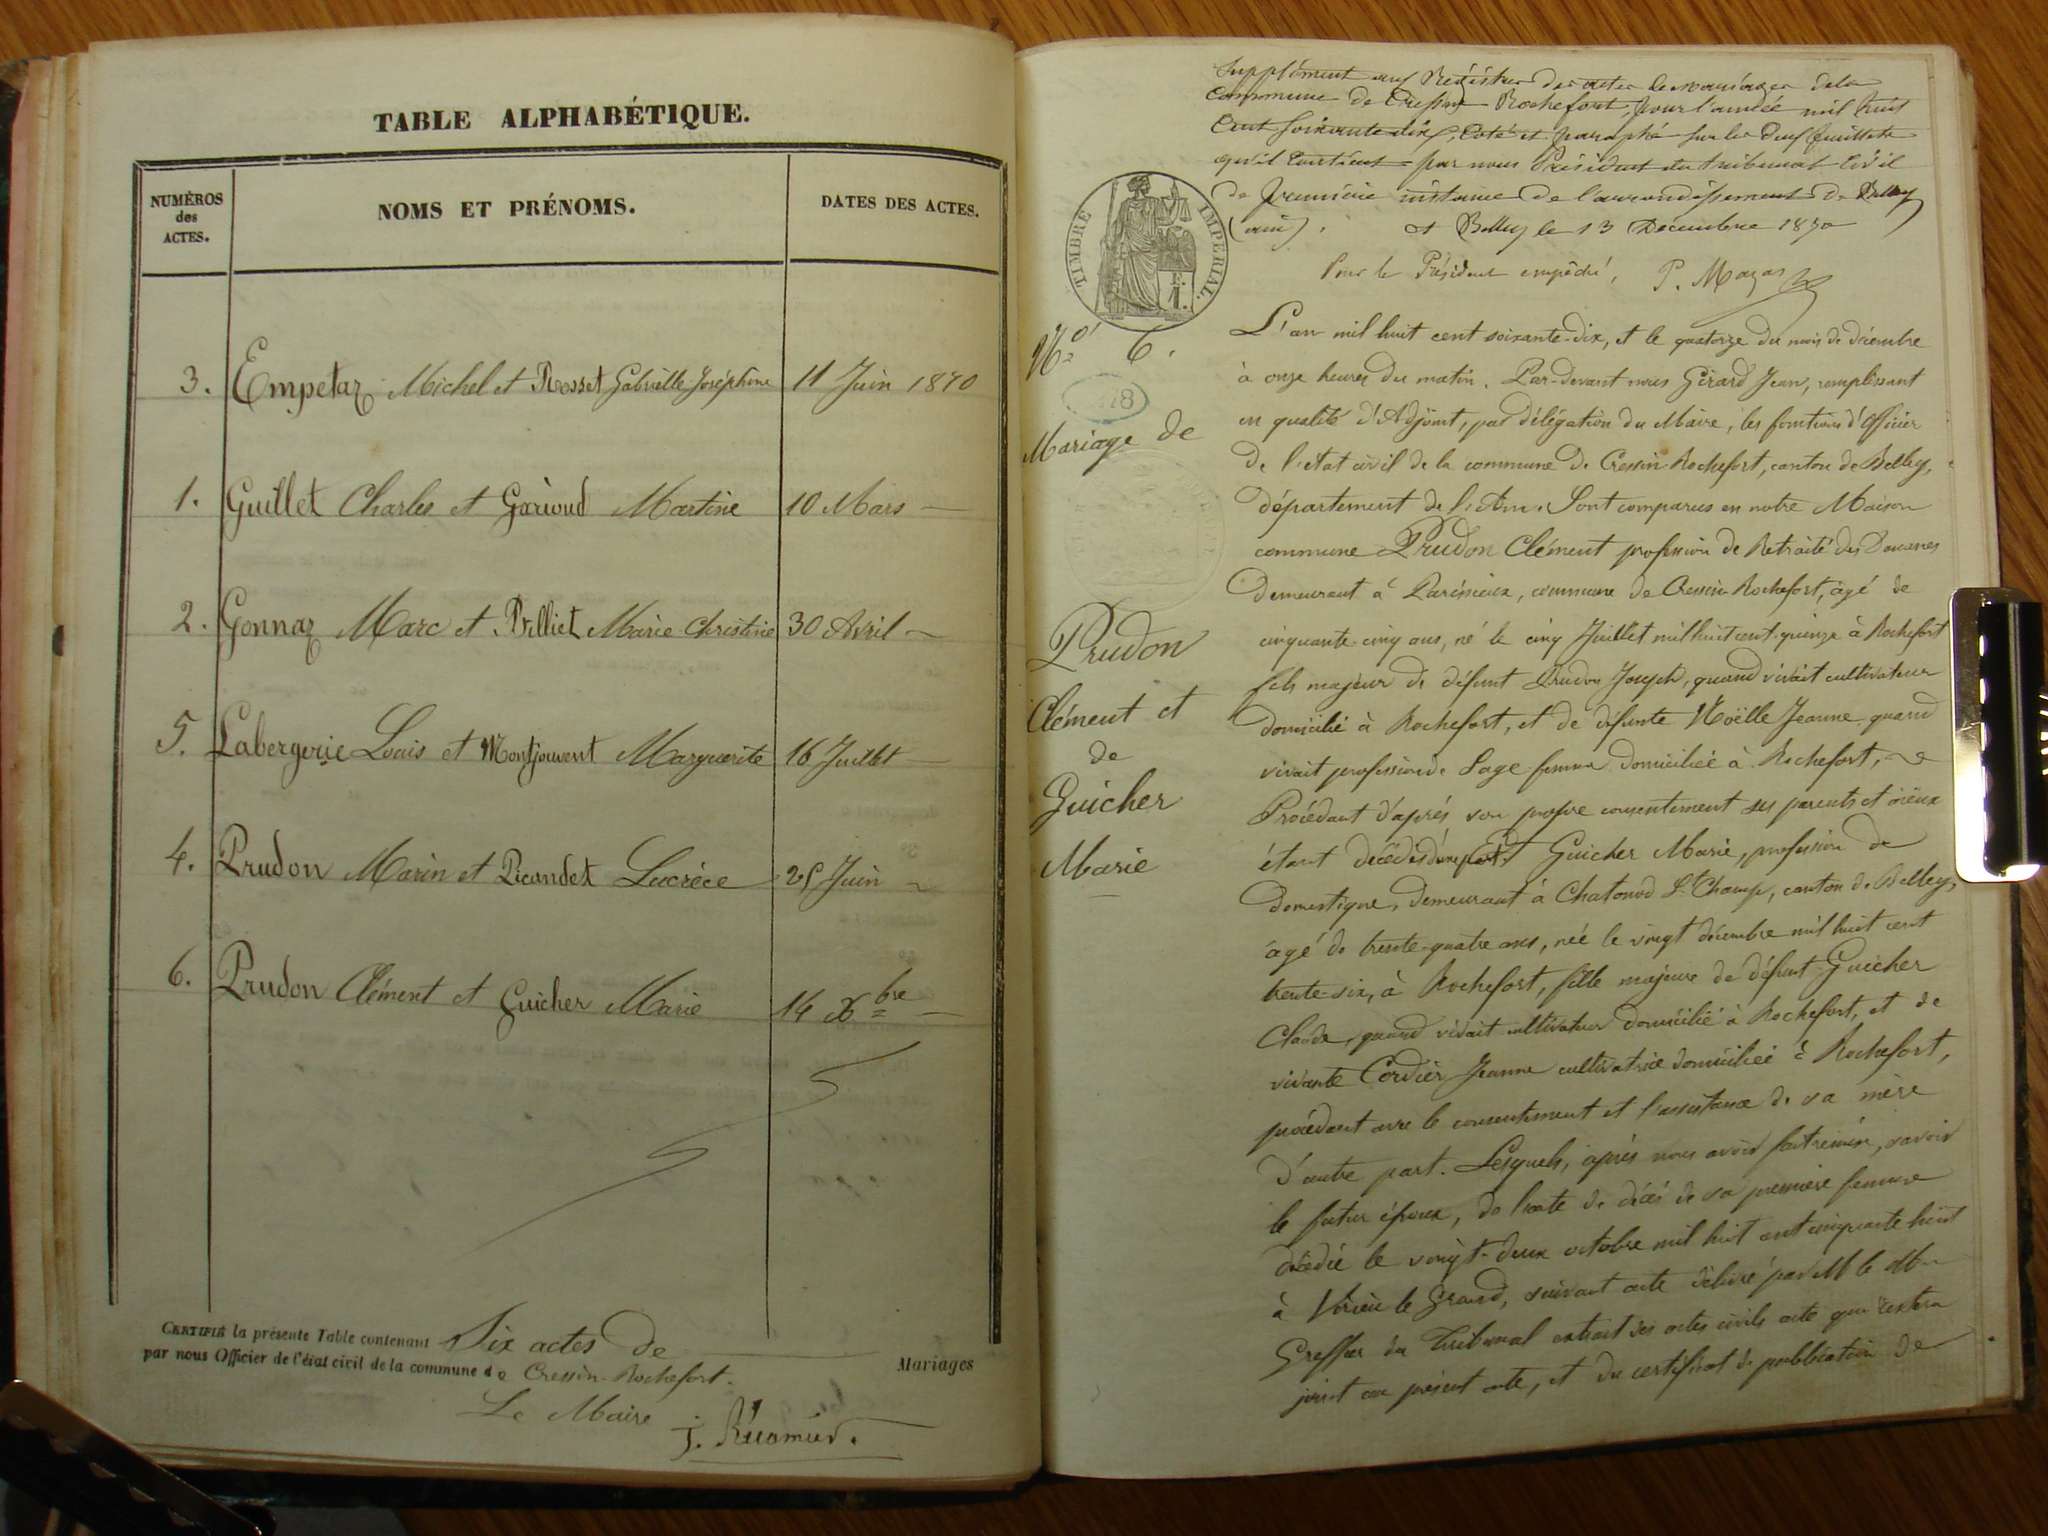 TABLE ALPHABÉTIQUE.
NUMÉROS
des
ACTES.
NOMS ET PRÉNOMS.
DATES DES ACTES.
3. Empetaz Michel et Rosset Gabrielle Joséphine 11 Juin 1870
1. Guillet Charles et Garioud Martine 10 Mars —
2. Gonnaz Marc et Billiet Marie Christine 30 Avril —
5. Labergerie Louis et Montjouvent Marguerite 16 Juillet —
4. Prudon Marin et Picandet Lucrèce 25 Juin —
6. Prudon Clément et Guicher Marie 14 Xbre —
CERTIFIÉ la présente Table contenant Six actes de Mariages
par nous Officier de l'état civil de la commune de Cressin-Rochefort.
Le Maire J. Récamier.
Supplément aux Registres des actes de mariages de la
commune de Cressin-Rochefort, pour l'année mil huit
cent soixante dix, coté et paraphé sur les deux feuillets
qu'il contient par nous Président du tribunal civil
de première instance de l'arrondissement de Belley
(ain). à Belley le 13 Décembre 1870
Pour le Président empêché, P. Mazas
TIMBRE IMPÉRIAL.
No. 6.
Mariage de
Prudon
Clément et
de
Guicher
Marie
L'an mil huit cent soixante-dix, et le quatorze du mois de décembre
à onze heures du matin. Par-devant nous Girard Jean, remplissant
en qualité d'Adjoint, par délégation du Maire, les fonctions d'Officier
de l'état civil de la commune de Cressin-Rochefort, canton de Belley,
département de l'Ain. Sont comparus en notre Maison
commune Prudon Clément profession de Retraité des Douanes
demeurant à Parissieux, commune de Cressin-Rochefort, âgé de
cinquante-cinq ans, né le cinq Juillet mil huit cent quinze à Rochefort
fils majeur de défunt Prudon Joseph, quand vivait cultivateur
domicilié à Rochefort, et de défunte Noëlle Jeanne quand
vivait profession de Sage-femme domiciliée à Rochefort,
Procédant d'après son propre consentement ses parents et aïeux
étant décédés d'une part. Et Guicher Marie, profession de
domestique, demeurant à Chatonod St Champ, canton de Belley,
âgé de trente-quatre ans, née le vingt décembre mil huit cent
trente-six, à Rochefort, fille majeure de défunt Guicher
Claude, quand vivait cultivateur domicilié à Rochefort, et de
vivante Cordier Jeanne cultivatrice domiciliée à Rochefort,
procédant avec le consentement et l'assistance de sa mère
d'autre part. Lesquels, après nous avoir fait remise, savoir
le futur époux, de l'acte de décès de sa première femme
décédée le vingt-deux octobre mil huit cent cinquante huit
à Virieu le Grand, suivant acte délivré par M le
Greffier du Tribunal extrait des actes civils acte qui restera
joint au présent acte, et du certificat de publication de